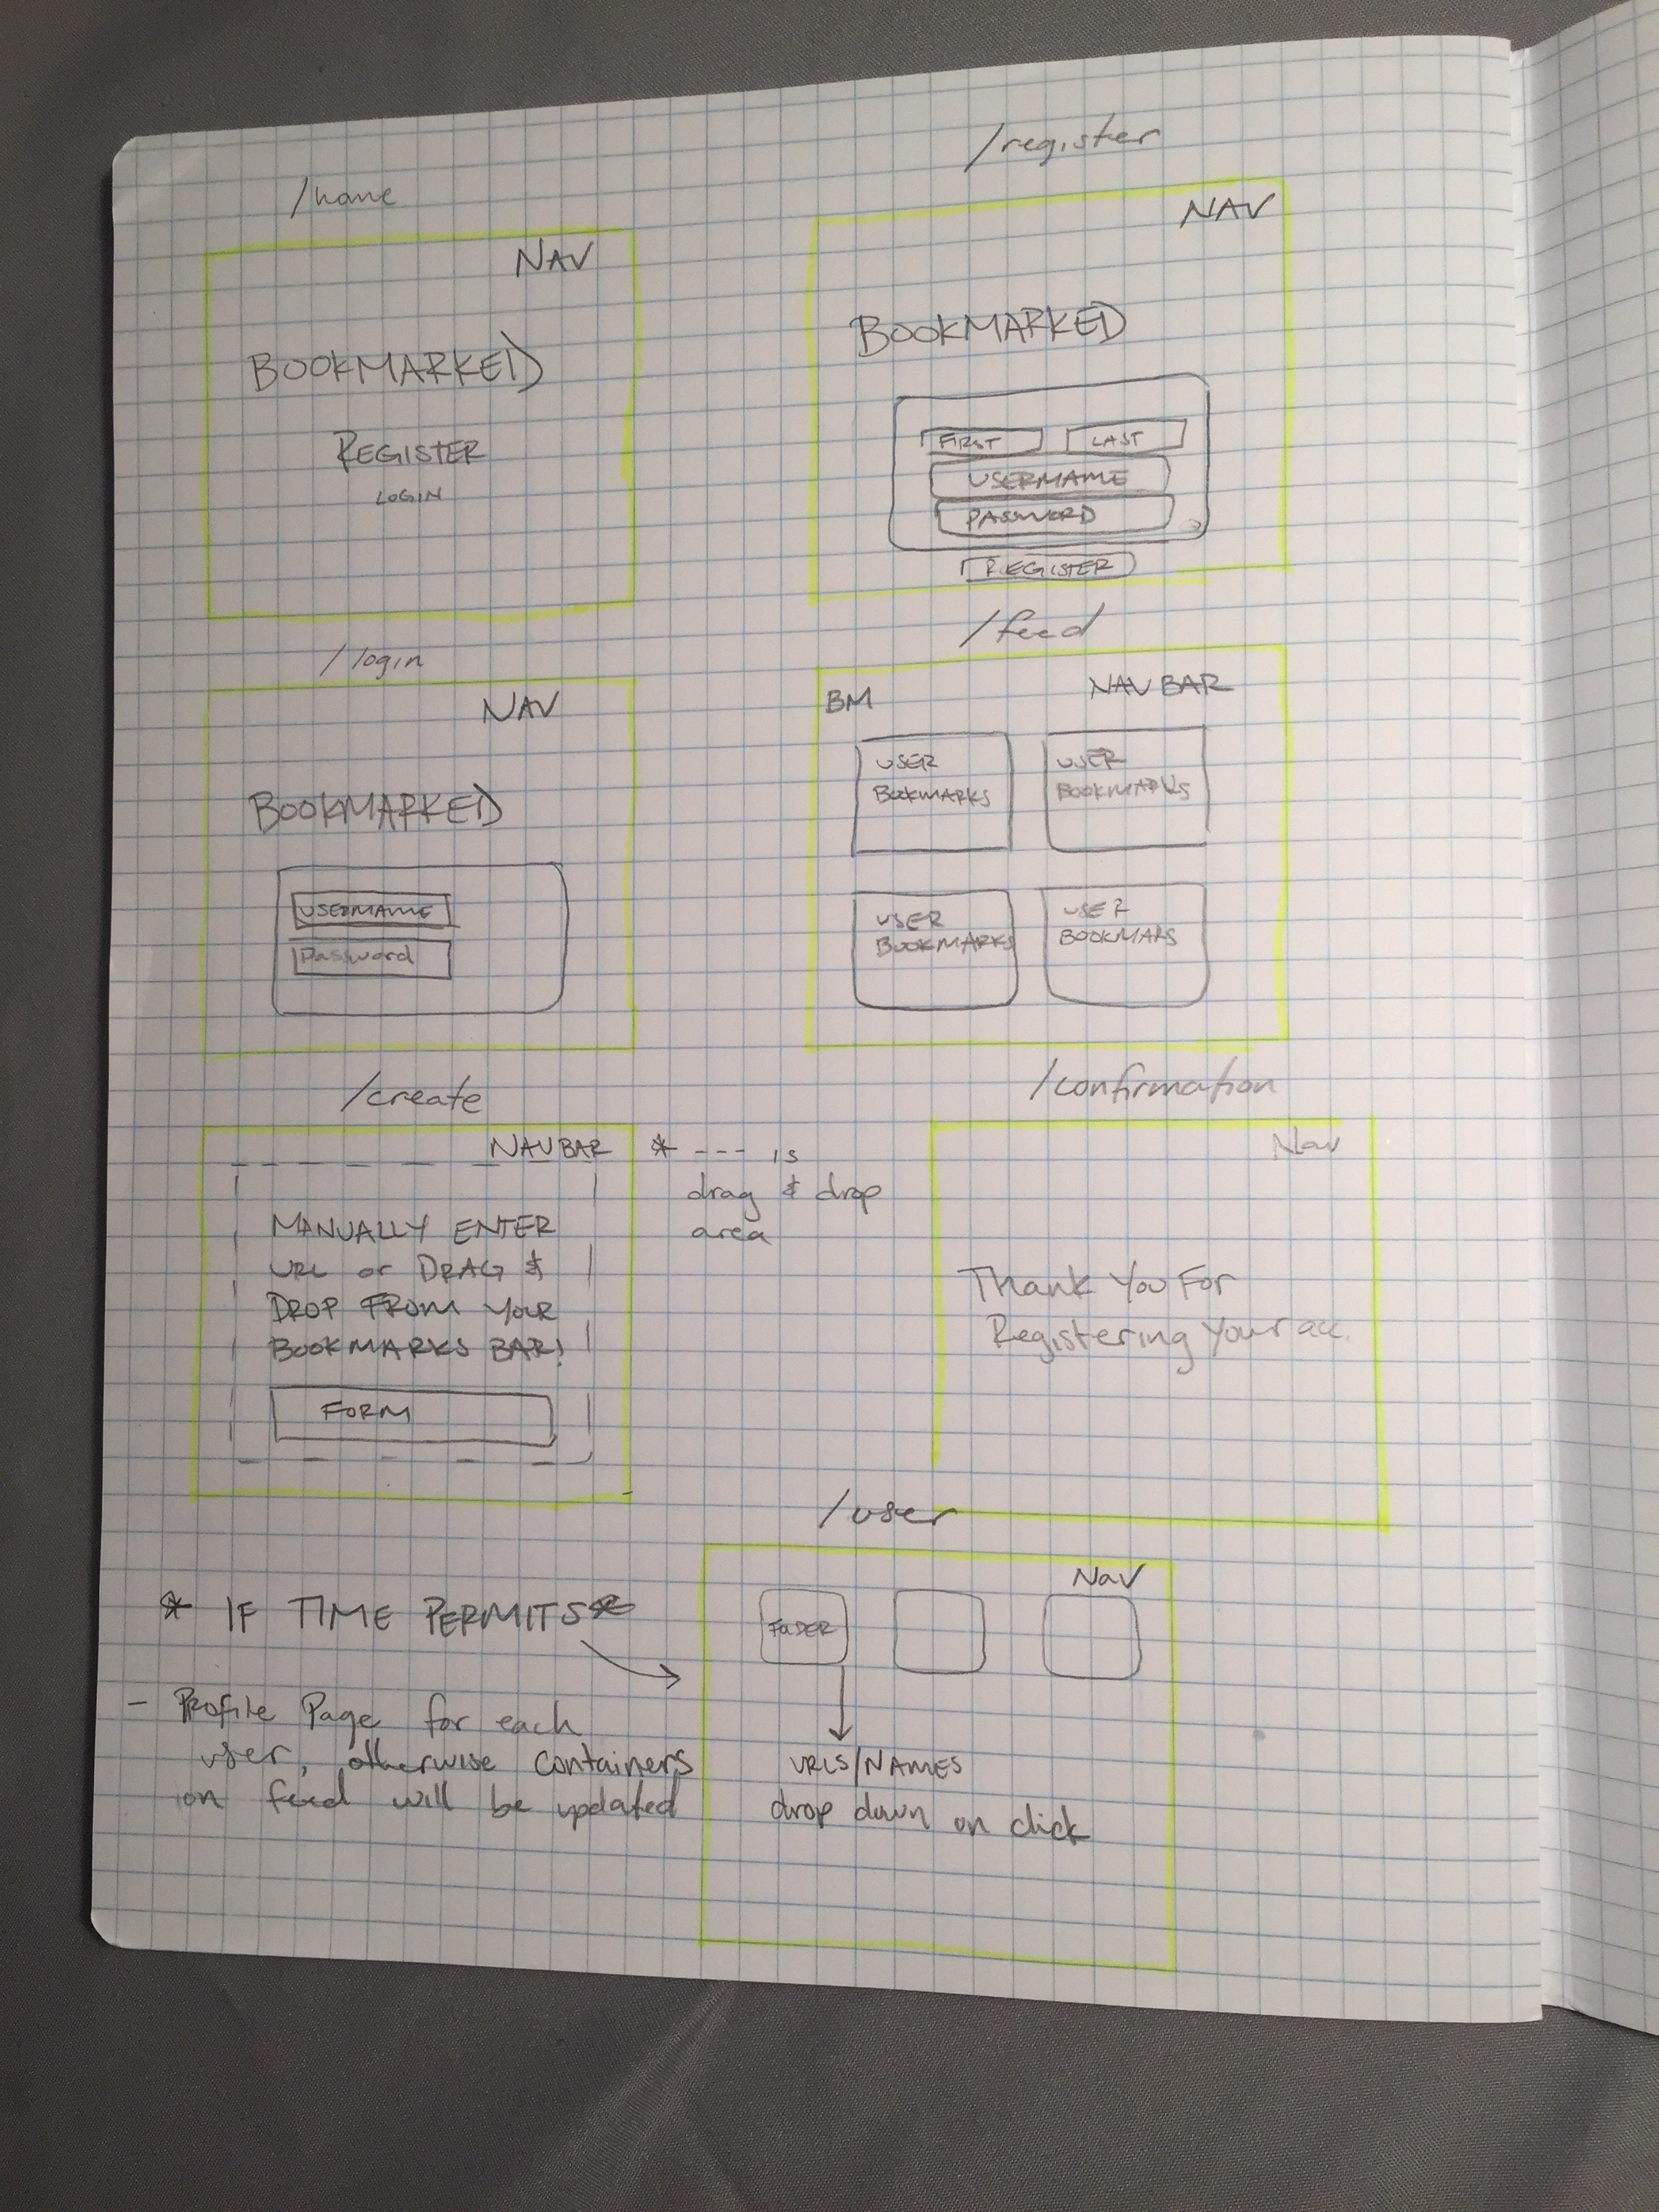 /home
NAV
BOOKMARKED
REGISTER
LOGIN
/register
NAV
BOOKMARKED
FIRST LAST
USERNAME
PASSWORD
REGISTER
/login
NAV
BOOKMARKED
USERNAME
Password
/feed
BM NAVBAR
USER
BOOKMARKS
USER
BOOKMARKS
USER
BOOKMARKS
USER
BOOKMARS
/create
NAVBAR
MANUALLY ENTER
URL or DRAG &
DROP FROM YOUR
BOOKMARKS BAR!
FORM
* --- is
drag & drop
area
/confirmation
Nav
Thank You For
Registering Your acc.
* IF TIME PERMITS *
- Profile Page for each
user, otherwise containers
on feed will be updated
/user
Nav
FOLDER
URLS/NAMES
drop down on click